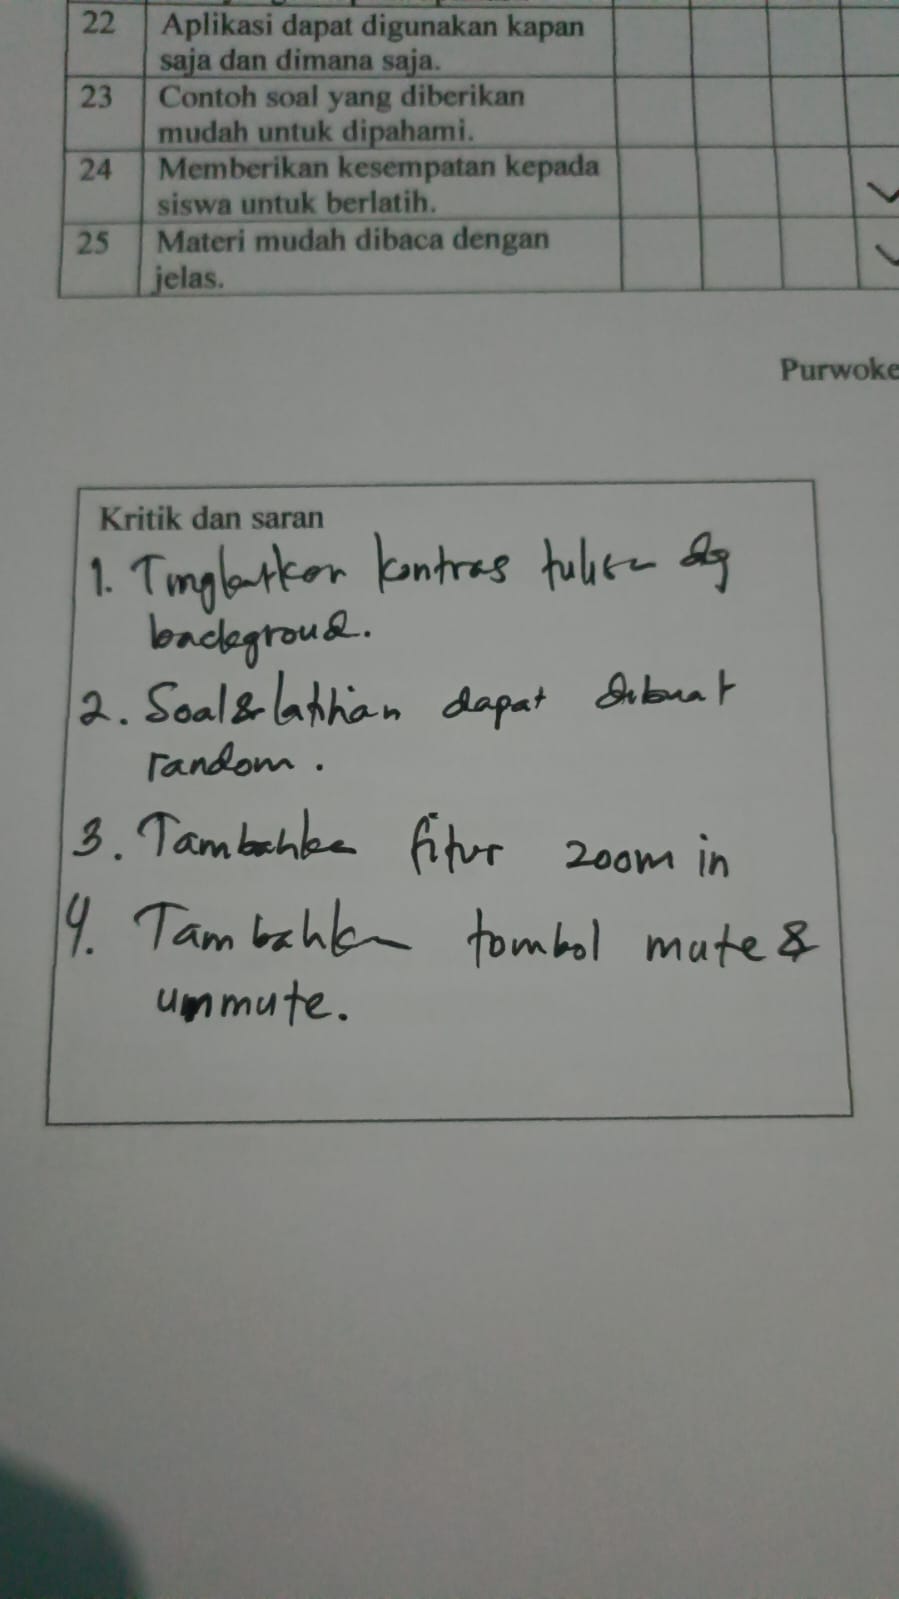 22 Aplikasi dapat digunakan kapan
saja dan dimana saja.
23 Contoh soal yang diberikan
mudah untuk dipahami.
24 Memberikan kesempatan kepada
siswa untuk berlatih.
25 Materi mudah dibaca dengan
jelas.
Purwoke
Kritik dan saran
1. Tingkatkan kontras tulisan dg
background.
2. Soal & latihan dapat dibuat
random.
3. Tambahkan fitur zoom in
4. Tambahkan tombol mute &
unmute.